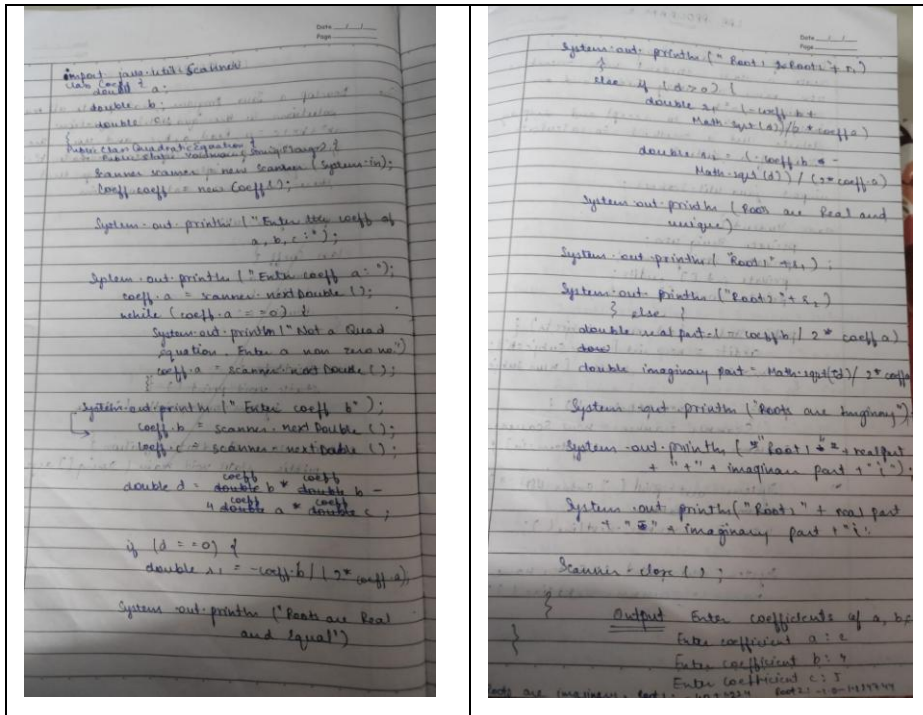 Date / /
Page
import java.util.Scanner
class Coeff {
double a;
double b;
double c;
}
Public class Quadratic Equation {
Public static void main (String args) {
Scanner scanner = new scanner (System.in);
Coeff coeff = new Coeff();
System.out.println ("Enter the coeff of
a, b, c : ");
System.out.println ("Enter coeff a: ");
coeff.a = scanner.nextDouble ();
while (coeff.a == 0) {
System.out.println ("Not a Quad
equation. Enter a non zero no.")
coeff.a = scanner.nextDouble ();
}
System.out.println (" Enter coeff b");
coeff.b = scanner.nextDouble ();
coeff.c = scanner.nextDouble ();
coeff coeff
double d = double b * double b -
coeff coeff
4 double a * double c ;
if (d == 0) {
double r1 = -coeff.b / (2* coeff.a)
System.out.println ("Roots are Real
and Equal")
Date / /
Page
System.out.println (" Root1 & Root2" + r1)
}
else if (d > 0) {
double r1 = (-coeff.b +
Math.sqrt (d)) / b * coeff.a)
double r2 = (-coeff.b -
Math.sqrt (d)) / (2* coeff.a)
System.out.println (Roots are Real and
unique)
System.out.println ( "Root1" + r1 ) ;
System.out.println ("Root2 : + r2 )
} else {
double real part = - coeff.b / 2* coeff.a)
double imaginary part = Math.sqrt(-d) / 2* coeff.a
System.out.println ("Roots are Imaginary")
System.out.println ( "Root1 " + realpart
+ "+" + imaginary part + "i");
System.out.println ("Root2 " + real part
+ "-" + imaginary part + "i
Scanner.close ( ) ;
}
}
Output Enter coefficients of a, b, c
Enter coefficient a : 2
Enter coefficient b : 4
Enter coefficient c : 5
Roots are imaginary.